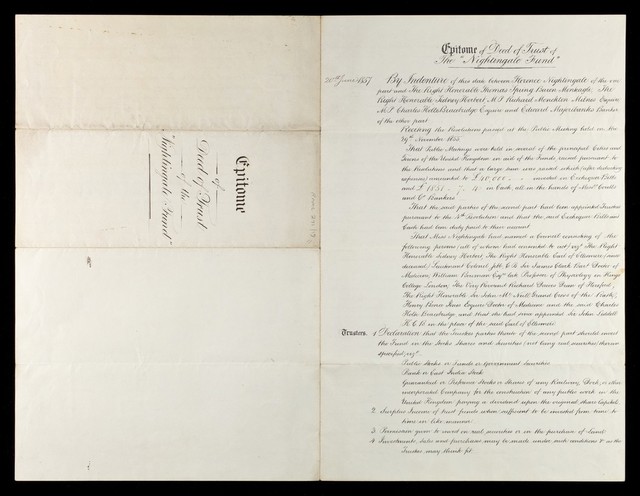 Epitome
of
Deed of Trust
of the
"Nightingale Fund"
Epitome of Deed of Trust of
The "Nightingale Fund"
20th June 1857
By Indenture of this date between Florence Nightingale of the one
part and The Right Honorable Thomas Spring Baron Monteagle, The
Right Honorable Sidney Herbert M.P. Richard Monckton Milnes Esquire
M.P. Charles Holte Bracebridge Esquire and Edward Marjoribanks Banker
of the other part
Reciting the Resolutions passed at the Public Meeting held on the
29th November 1855.
That Public Meetings were held in aid of the principal Cities and
Towns of the United Kingdom in aid of the Funds raised pursuant to
the Resolutions and that a large sum was raised which (after deducting
expenses) amounted to £40,000 invested in Exchequer Bills
and £1851 . 7 . 4 in Cash, all in the hands of Messrs. Coutts
and Co. Bankers
That the said parties of the second part had been appointed Trustees
pursuant to the 4th Resolution and that the said Exchequer Bills and
Cash had been duly paid to their account
That Miss Nightingale had named a Council consisting of the
following persons (all of whom had consented to act) viz. The Right
Honorable Sidney Herbert The Right Honorable Earl of Ellesmere (since
deceased) Lieutenant Colonel Jebb, C.B. Sir James Clark Bart. Doctor of
Medicine, William Bowman Esqre late Professor of Physiology in Kings
College London, The Very Reverend Richard Dawes Dean of Hereford,
The Right Honorable Sir John McNeill Grand Cross of the Bath,
Henry Bence Jones Esquire Doctor of Medicine and the said Charles
Holte Bracebridge, and that she had since appointed Sir John Liddell
K.C.B. in the place of the said Earl of Ellesmere
Trustees. 1 Declaration that the Trustees parties thereto of the second part should invest
the Fund in the Stocks Shares and Securities (not being real securities) therein
specified, viz.
Public Stocks or Funds or Government Securities
Bank or East India Stock
Guaranteed or Preference Stocks or Shares of any Railway, Dock, or other
incorporated Company for the construction of any public work in the
United Kingdom paying a dividend upon the original share Capital
2. Surplus Income of trust funds when sufficient to be invested from time to
time in like manner
3. Permission given to invest on real securities or in the purchase of Land
4 Investments, Sales and purchases may be made under such conditions &c as the
Trustees may think fit.